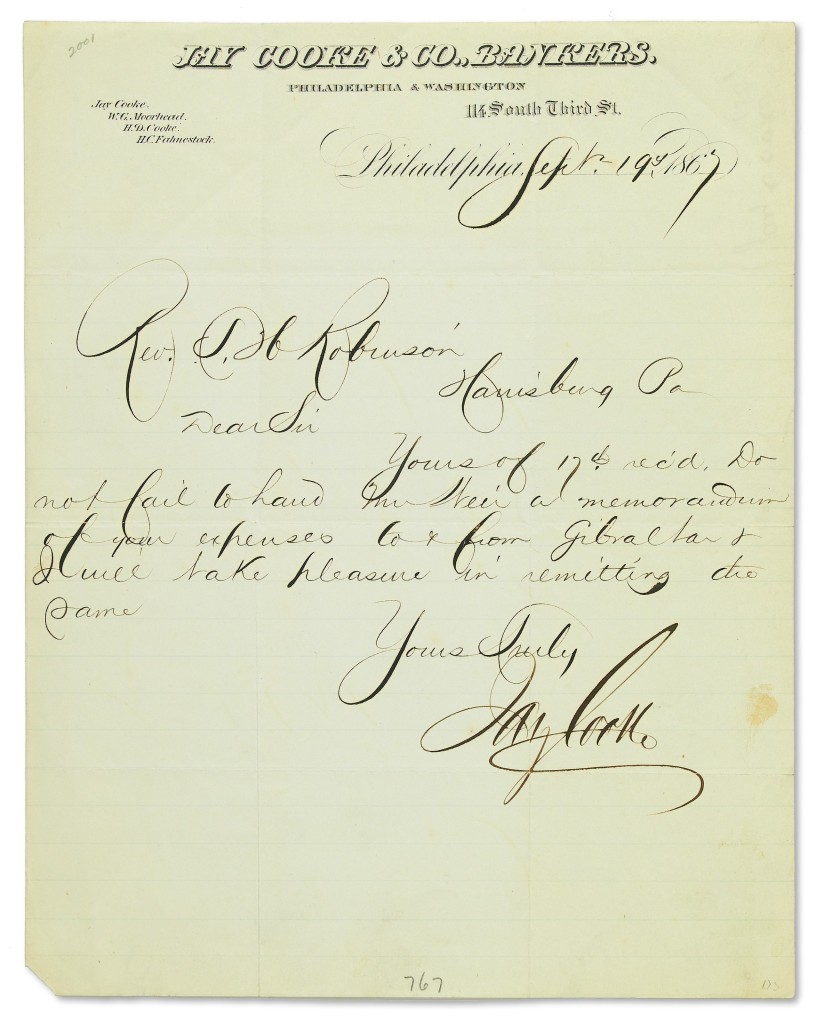 2001
JAY COOKE & CO., BANKERS.
PHILADELPHIA & WASHINGTON
114 South Third St.
Jay Cooke.
W.G. Moorhead.
H.D. Cooke.
H.C. Fahnestock.
Philadelphia, Sept. 19th 1867
Rev. T. H Robinson
Harrisburg Pa
Dear Sir
Yours of 17th rec'd. Do
not fail to hand Mr Weir a memorandum
of your expenses to & from Gibraltar &
I will take pleasure in remitting the
same
Yours Truly
Jay Cooke
767